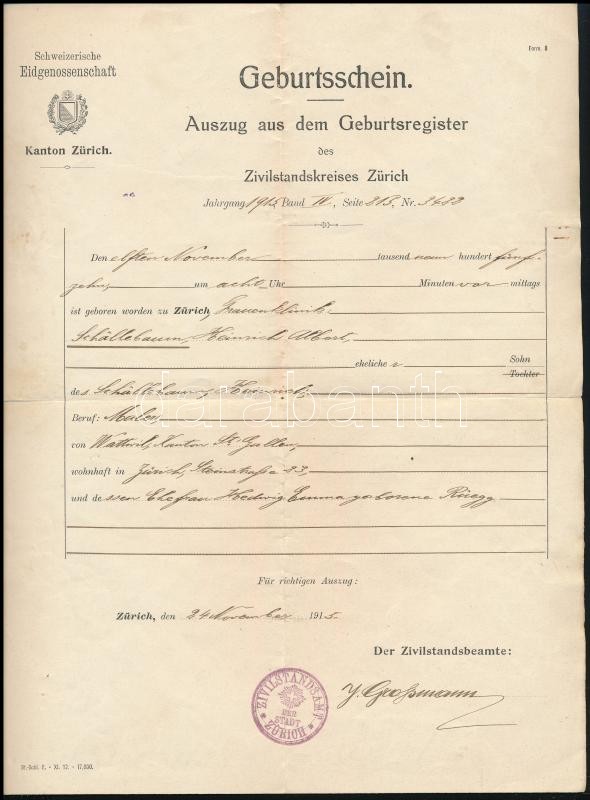 Form. 8
Schweizerische
Eidgenossenschaft
Kanton Zürich.
Geburtsschein.
Auszug aus dem Geburtsregister
des
Zivilstandskreises Zürich
Jahrgang 1915, Band IV, Seite 215, Nr. 3483
Den elften November tausend neun hundert fünf-
zehn, um acht Uhr Minuten vor mittags
ist geboren worden zu Zürich, Frauenklinik:
Schällebaum, Heinrich Albert,
eheliche r Sohn
Tochter
des Schällebaum, Heinrich,
Beruf: Maler,
von Wattwil, Kanton St. Gallen,
wohnhaft in Zürich, Steinstraße 23,
und de ssen Ehefrau Hedwig Emma geborene Rüegg
Für richtigen Auszug:
Zürich, den 24 November 1915.
Der Zivilstandsbeamte:
J. Großmann
ZIVILSTANDSAMT
DER
STADT
ZÜRICH
St.-Schl. E. - XI. 12. - 17,000.
darabanth